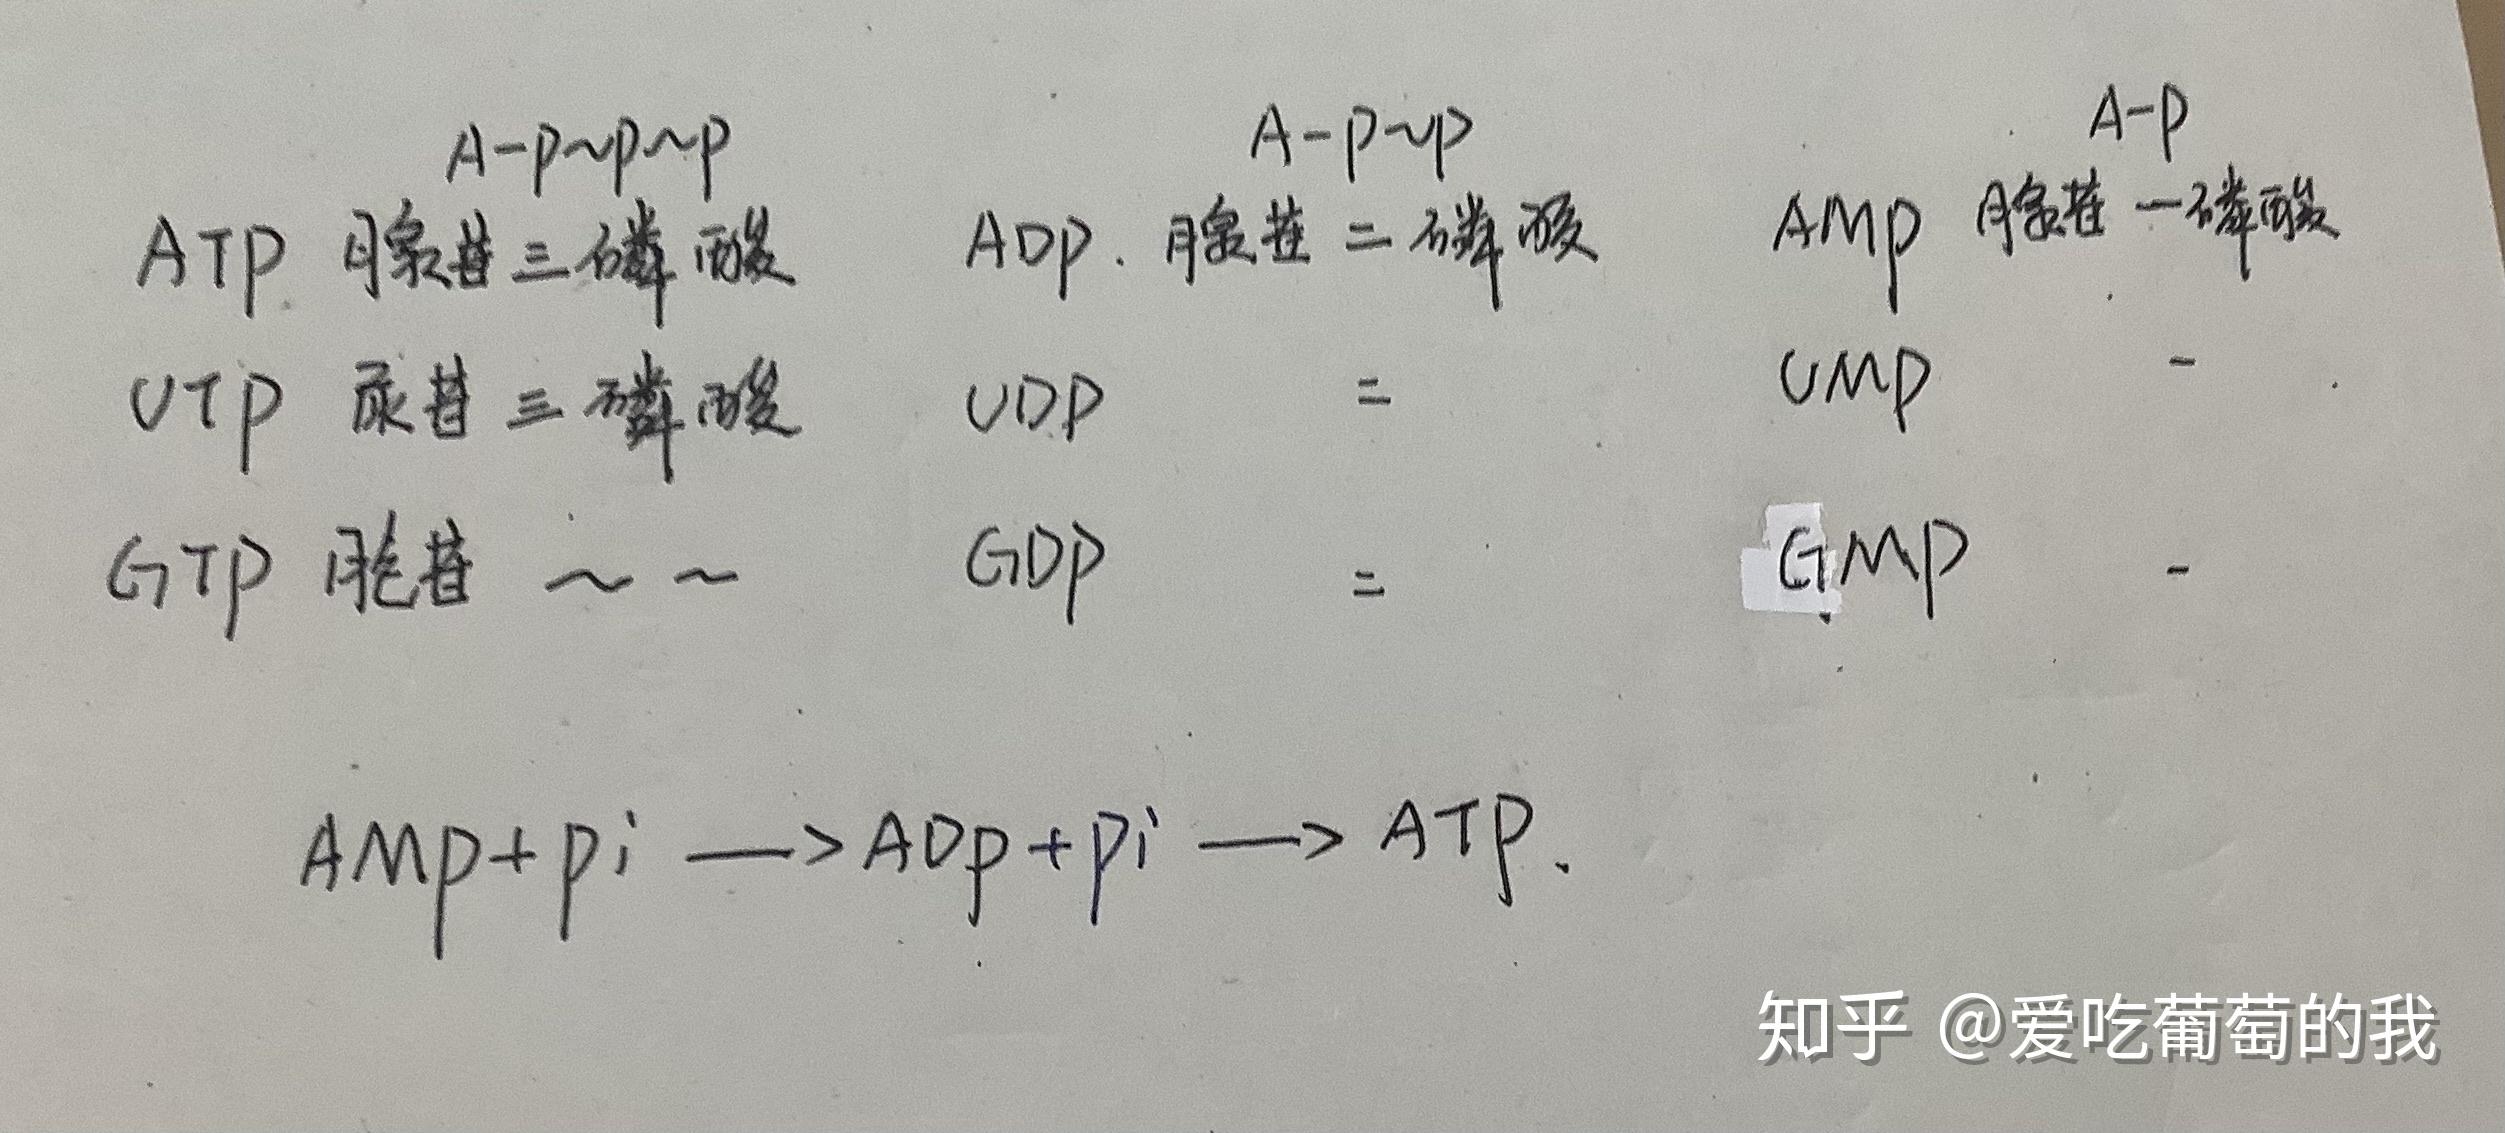 A-p~p~p A-p~p A-p
ATP 腺苷三磷酸 ADP. 腺苷二磷酸 AMP 腺苷一磷酸
UTP 尿苷三磷酸 UDP = UMP -
GTP 胞苷 ~ ~ GDP = GMP -
AMP+pi → ADP+pi → ATP.
知乎 @爱吃葡萄的我